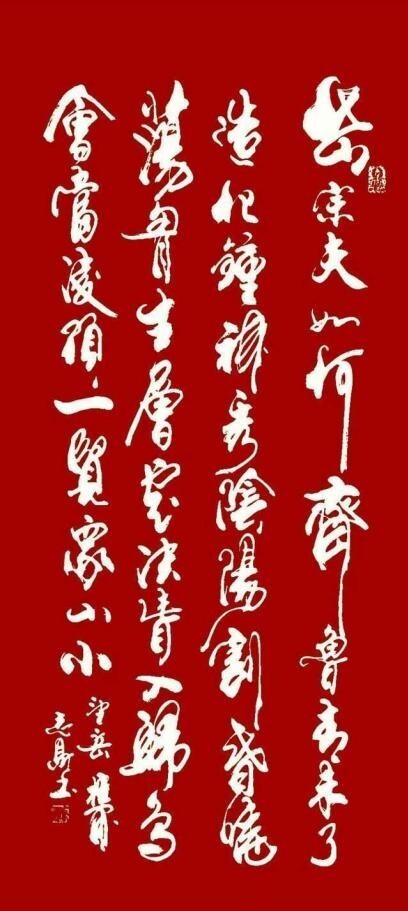 岱宗夫如何齊魯青未了
造化鍾神秀陰陽割昏曉
蕩胷生層雲決眥入歸鳥
會當淩頂一覽眾山小
望岳 杜甫